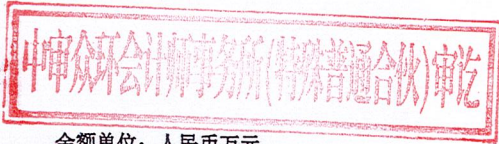 中审众环会计师事务所(特殊普通合伙)审讫
金额单位：人民币万元